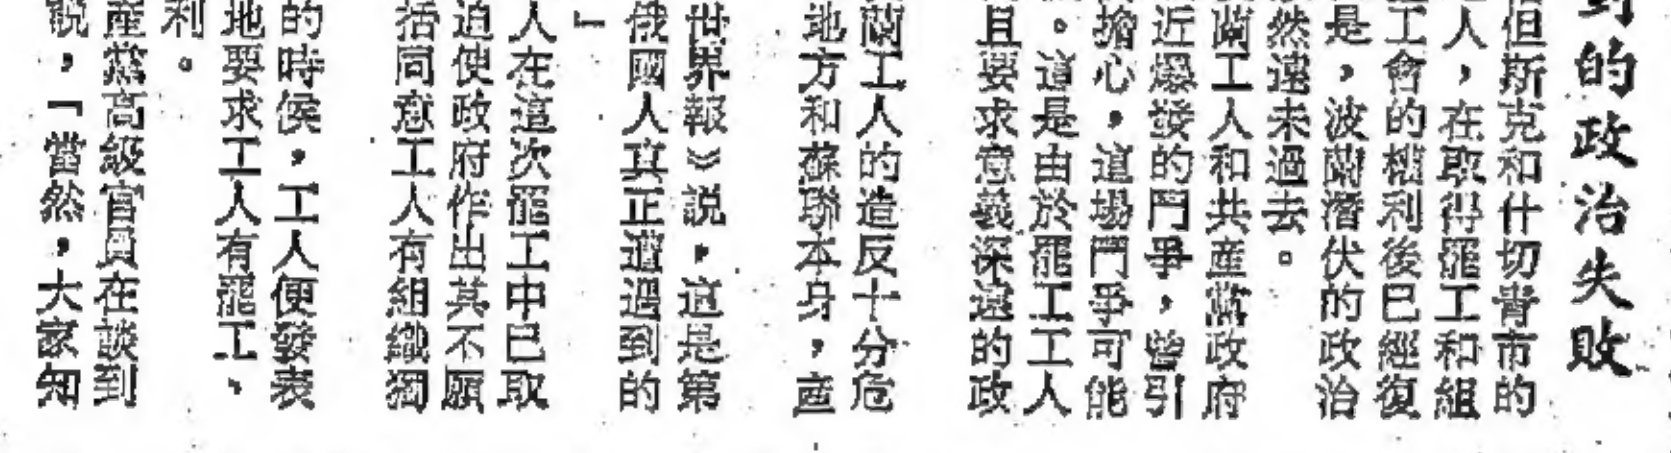 的政治失敗
但斯克和什切青市的
人，在取得罷工和組
工會的權利後已經復
是，波蘭潛伏的政治
然遠未過去。
蘭工人和共産黨政府
近爆發的鬥爭，曾引
擔心，這場鬥爭可能
。這是由於罷工工人
且要求意義深遠的政
蘭工人的造反十分危
地方和蘇聯本身，産
世界報》説，這是第
俄國人真正遭遇到的
』
人在這次罷工中已取
迫使政府作出其不願
括同意工人有組織獨
的時侯，工人便發表
地要求工人有罷工、
利。
産黨高級官員在談到
説，「當然，大家知